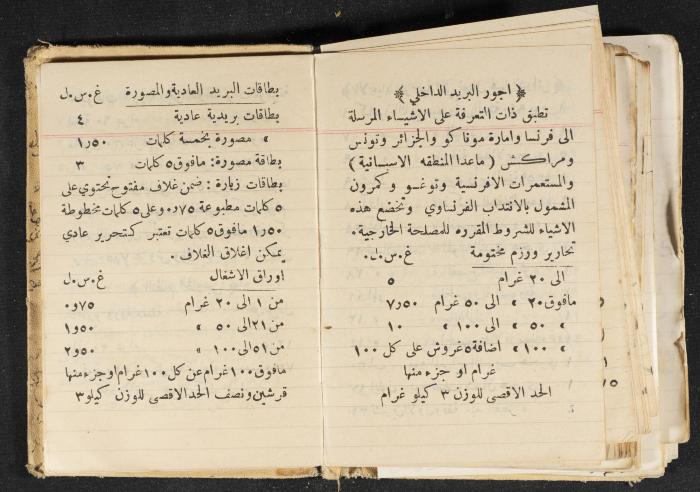 ﴿ اجور البريد الداخلي ﴾
تطبق ذات التعرفة على الاشياء المرسلة
الى فرنسا وامارة موناكو والجزائر وتونس
ومراكش ( ماعدا المنطقه الاسبانية )
والمستعمرات الافرنسية وتوغو وكمرون
المشمول بالانتداب الفرنساوي وتخضع هذه
الاشياء للشروط المقرره للمصلحة الخارجية.
تحارير ورزم مختومة غ.س.ل.
الى ٢٠ غرام ٥
مافوق ٢٠ » الى ٥٠ غرام ٧٫٥٠
» ٥٠ » الى ١٠٠ » ١٠
» ١٠٠ » اضافة ٥ غروش على كل ١٠٠
غرام او جزء منها
الحد الاقصى للوزن ٣ كيلو غرام
بطاقات البريد العادية والمصورة غ.س.ل
بطاقات بريدية عادية ٤
» مصورة بخمسة كلمات ١٫٥٠
بطاقة مصورة: مافوق ٥ كلمات ٣
بطاقات زيارة: ضمن غلاف مفتوح تحتوي على
٥ كلمات مطبوعة ٠٫٧٥ وعلى ٥ كلمات مخطوطة
١٫٥٠ مافوق ٥ كلمات تعتبر كتحرير عادي
يمكن اغلاق الغلاف.
اوراق الاشغال غ.س.ل
من ١ الى ٢٠ غرام ٠٫٧٥
من ٢١ الى ٥٠ » ١٫٥٠
من ٥١ الى ١٠٠ » ٢٫٥٠
مافوق ١٠٠ غرام عن كل ١٠٠ غرام او جزء منها
قرشين ونصف الحد الاقصى للوزن كيلو ٣